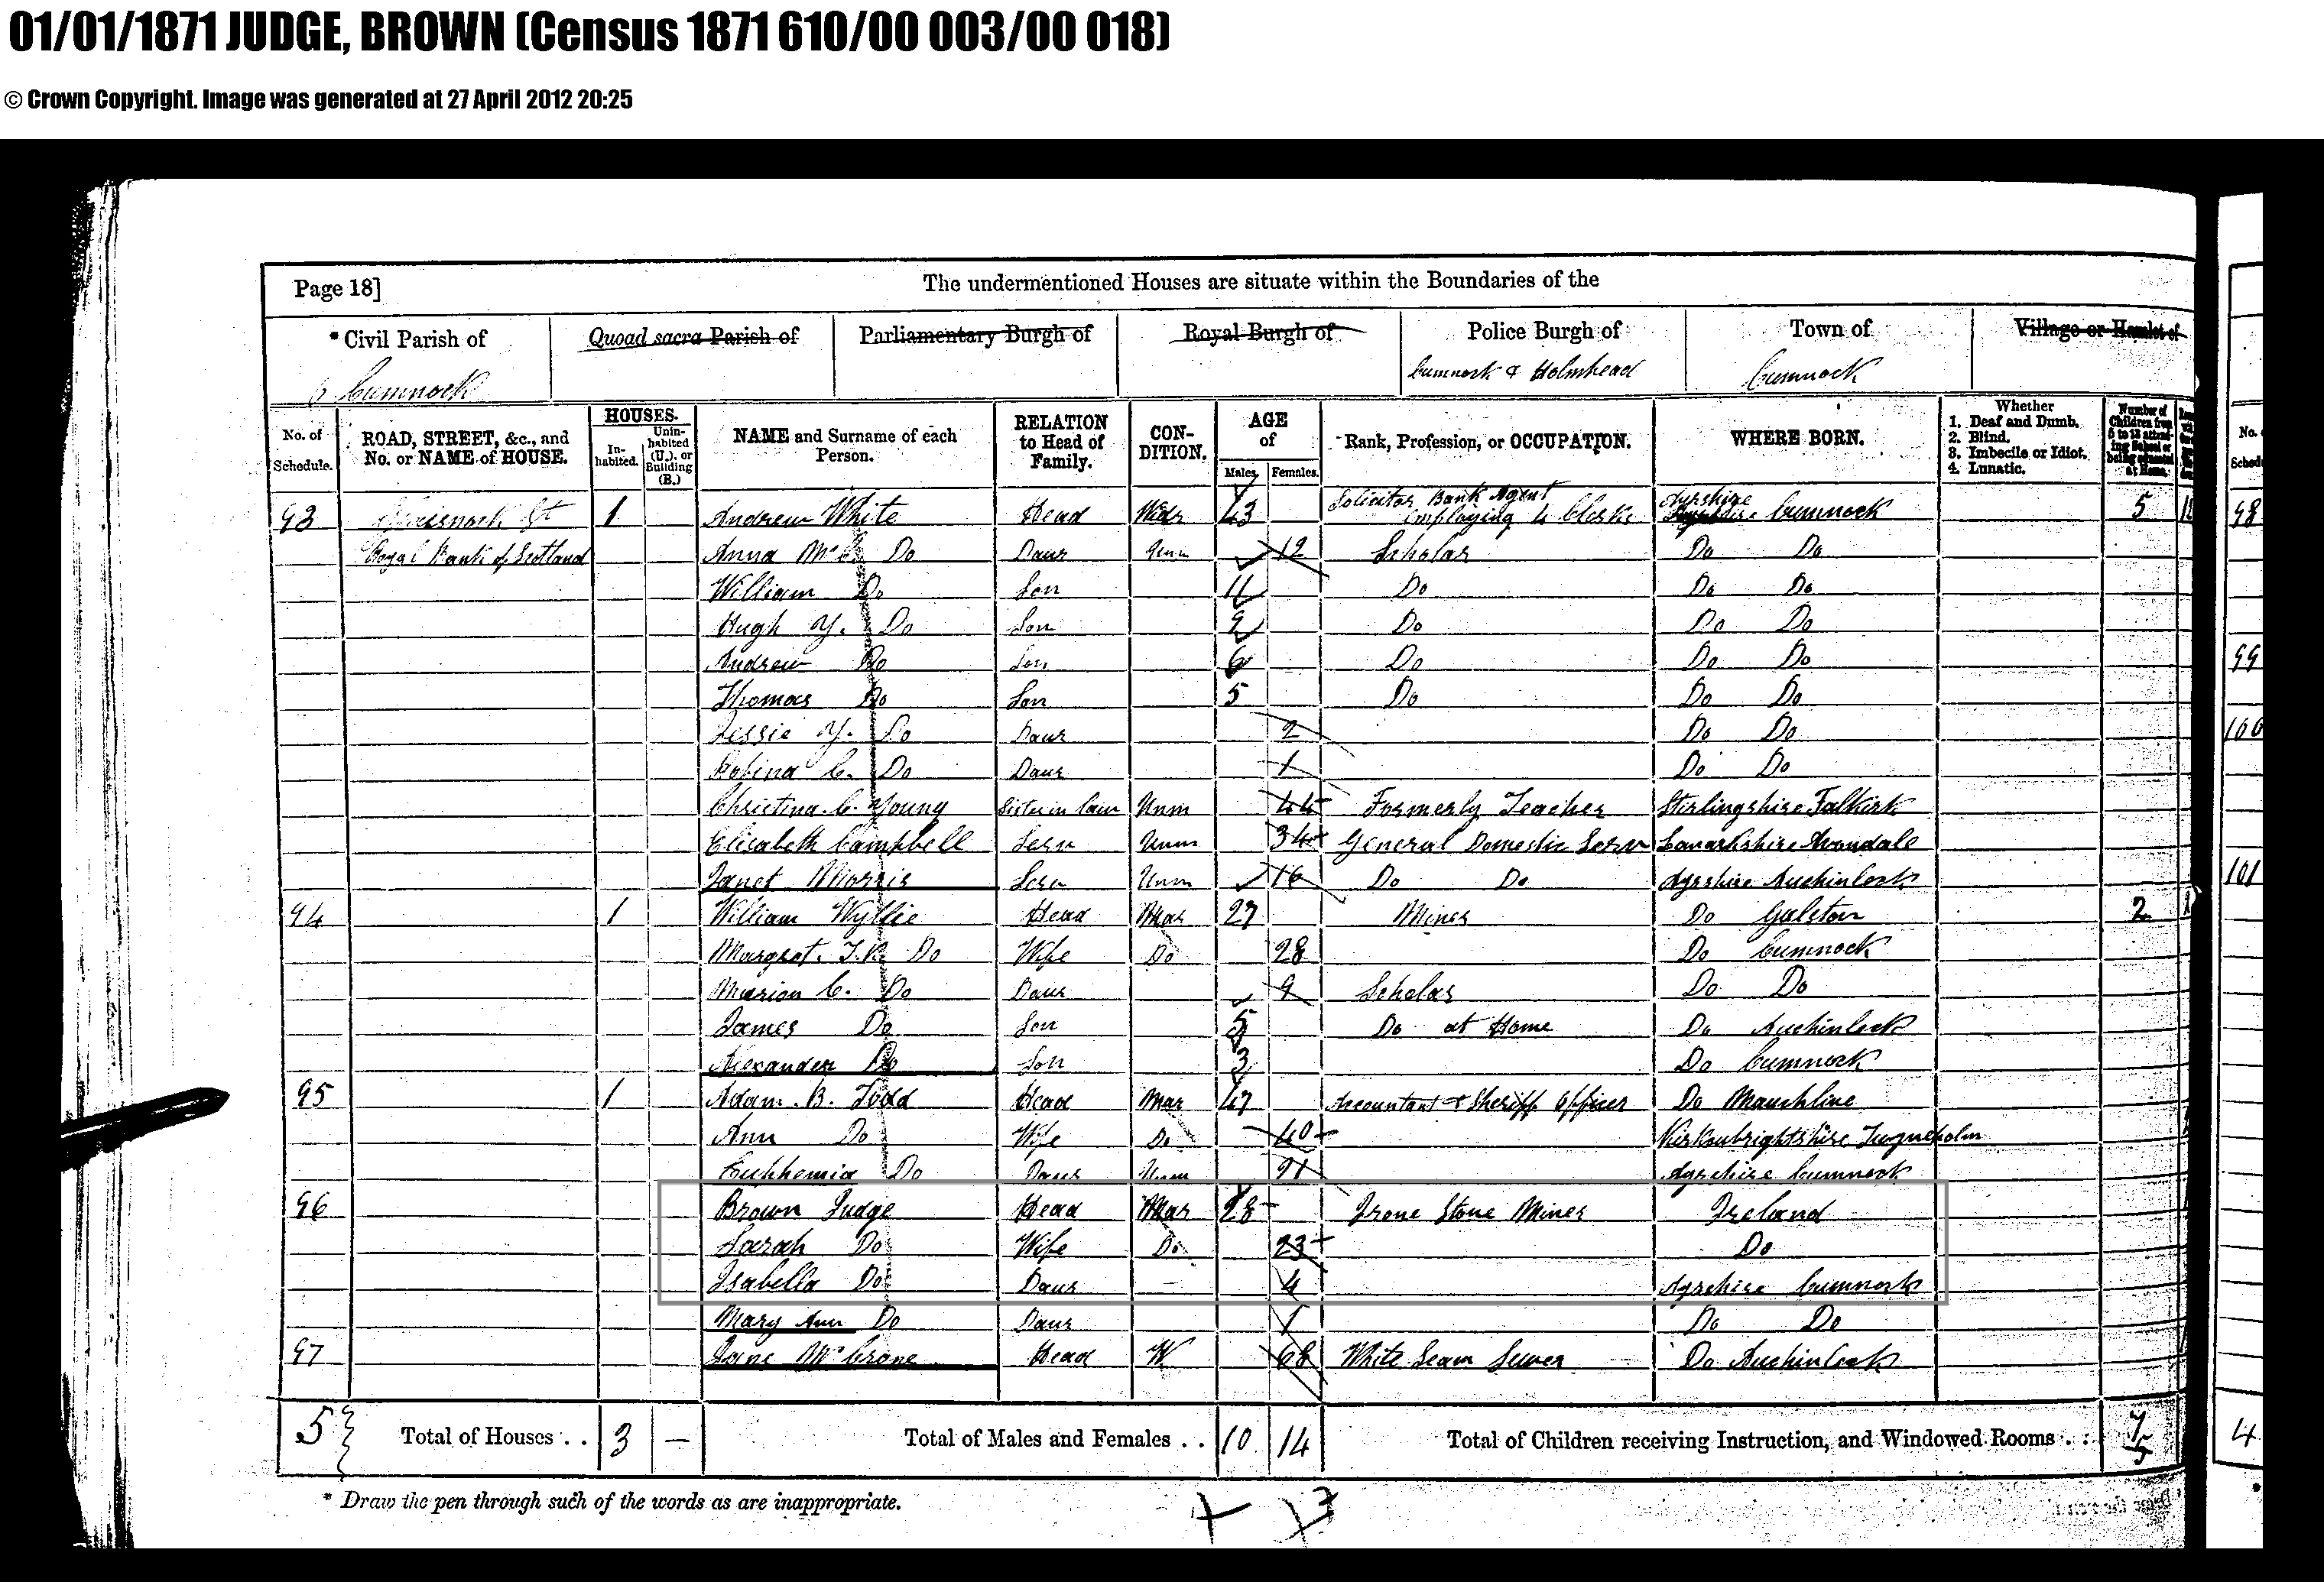 01/01/1871 JUDGE, BROWN (Census 1871 610/00 003/00 018)
© Crown Copyright. Image was generated at 27 April 2012 20:25
Page 18] The undermentioned Houses are situate within the Boundaries of the
* Civil Parish of Quoad sacra Parish of Parliamentary Burgh of Royal Burgh of Police Burgh of Town of Village or Hamlet of
Cumnock Cumnock & Holmhead Cumnock
No. of Schedule. ROAD, STREET, &c., and No. or NAME of HOUSE. HOUSES. In-habited. Unin-habited (U.), or Building (B.) NAME and Surname of each Person. RELATION to Head of Family. CON-DITION. AGE of Males. Females. Rank, Profession, or OCCUPATION. WHERE BORN. Whether 1. Deaf and Dumb. 2. Blind. 3. Imbecile or Idiot. 4. Lunatic. Number of Children from 5 to 13 attending School or being educated at Home. No. Sched
93 St 1 Andrew White Head Widr 43 Solicitor Bank Agent employing 4 Clerks Ayrshire Cumnock 5 98
Royal Bank of Scotland Anna Mc Do Daur Unm 12 Scholar Do Do
William Do Son 11 Do Do Do
Hugh Y. Do Son 9 Do Do Do
Andrew Do Son 6 Do Do Do 99
Thomas Do Son 5 Do Do Do
Jessie Y. Do Daur 2 Do Do 100
Robina C. Do Daur 1 Do Do
Christina C. Young Sister in law Unm 44 Formerly Teacher Stirlingshire Falkirk
Elisabeth Campbell Serv Unm 34 General Domestic Serv Lanarkshire Avondale
Janet Morris Serv Unm 16 Do Do Ayrshire Auchinleck 101
94 1 William Wyllie Head Mar 27 Miner Do Galston 2
Margret. Do Wife Do 28 Do Cumnock
Marion C. Do Daur 9 Scholar Do Do
James Do Son 5 Do at Home Do Auchinleck
Alexander Do Son 3 Do Cumnock
95 1 Adam. B. Todd Head Mar 47 Accountant & Sheriff Officer Do Mauchline
Ann Do Wife Do 40 Kirkcubrightshire
Euphemia Do Daur Unm 21 Ayrshire Cumnock
96 Brown Judge Head Mar 28 Irone Stone Miner Ireland
Sarah Do Wife Do 23 Do
Isabella Do Daur 4 Ayrshire Cumnock
Mary Ann Do Daur 1 Do Do
97 Jane McCrone Head W 68 White Seam Sewer Do Auchinleck
5 Total of Houses . . 3 — Total of Males and Females . . 10 14 Total of Children receiving Instruction, and Windowed Rooms . . 7 5 4
* Draw the pen through such of the words as are inappropriate.